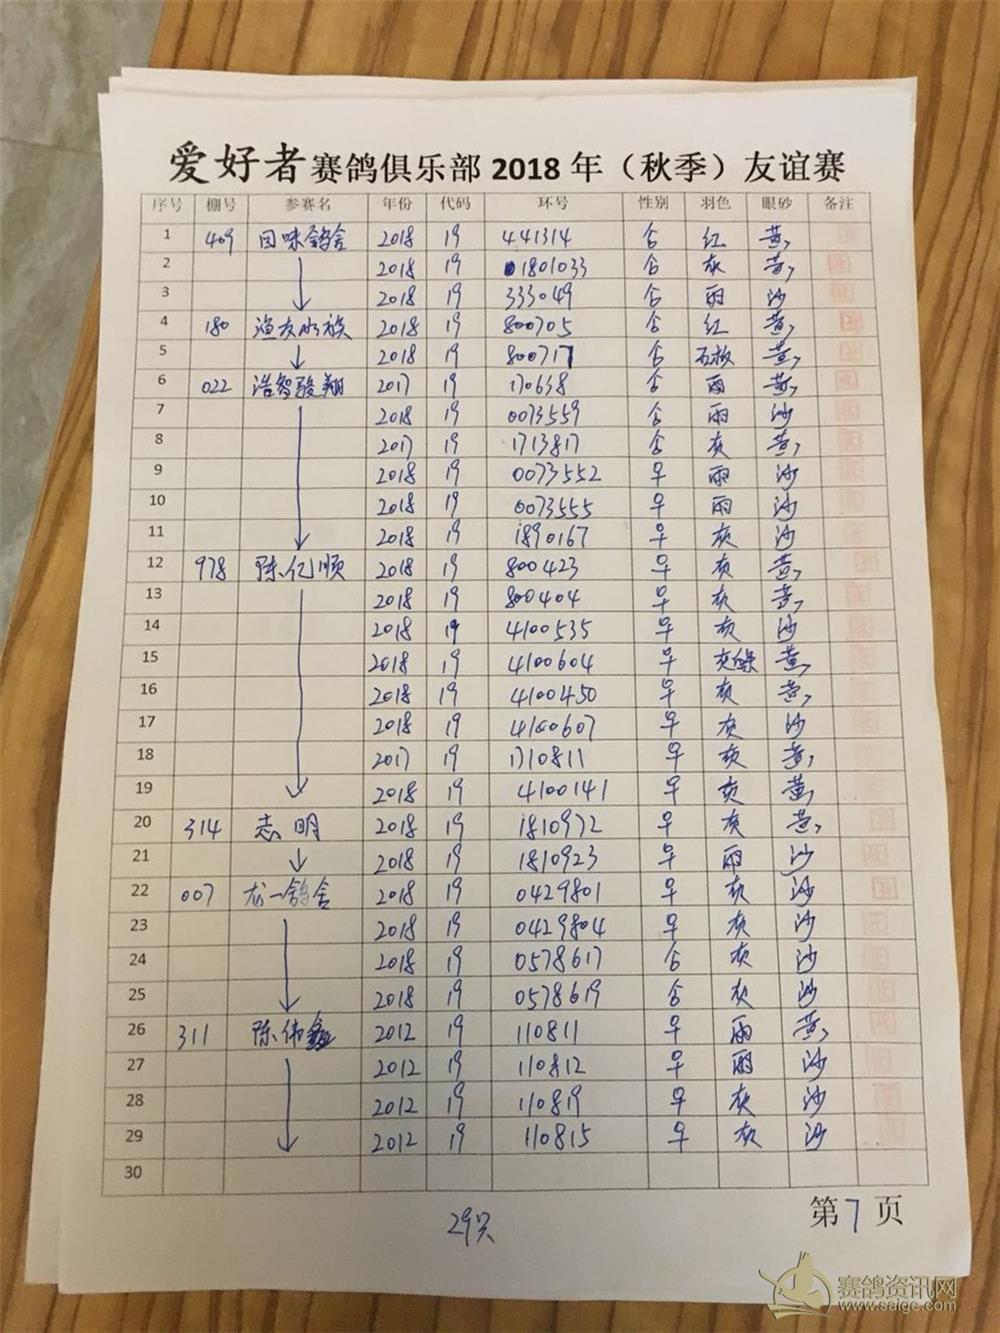 爱好者赛鸽俱乐部2018年（秋季）友谊赛
序号 棚号 参赛名 年份 代码 环号 性别 羽色 眼砂 备注
1 409 回味鸽舍 2018 19 441314 合 红 黄
2 2018 19 1801033 合 灰 黄
3 2018 19 333049 合 雨 沙
4 180 渔友水族 2018 19 800705 合 红 黄
5 2018 19 800717 合 石板 黄
6 022 浩智骏翔 2017 19 170638 合 雨 黄
7 2018 19 0073559 合 雨 沙
8 2017 19 1713817 合 灰 黄
9 2018 19 0073552 早 雨 沙
10 2018 19 0073555 早 雨 沙
11 2018 19 1890167 早 灰 沙
12 978 陈亿顺 2018 19 800423 早 灰 黄
13 2018 19 800404 早 灰 黄
14 2018 19 4100535 早 灰 沙
15 2018 19 4100604 早 灰绿 黄
16 2018 19 4100450 早 灰 黄
17 2018 19 4100607 早 灰 沙
18 2017 19 1710811 早 灰 黄
19 2018 19 4100141 早 灰 黄
20 314 志明 2018 19 1810972 早 灰 黄
21 2018 19 1810923 早 雨 沙
22 007 龙一鸽舍 2018 19 0429801 早 灰 沙
23 2018 19 0429804 早 灰 沙
24 2018 19 0578617 合 灰 沙
25 2018 19 0578619 合 灰 沙
26 311 陈伟鑫 2012 19 110811 早 雨 黄
27 2012 19 110812 早 雨 沙
28 2012 19 110819 早 灰 沙
29 2012 19 110815 早 灰 沙
30
29只
第7页
赛鸽资讯网
www.saigc.com